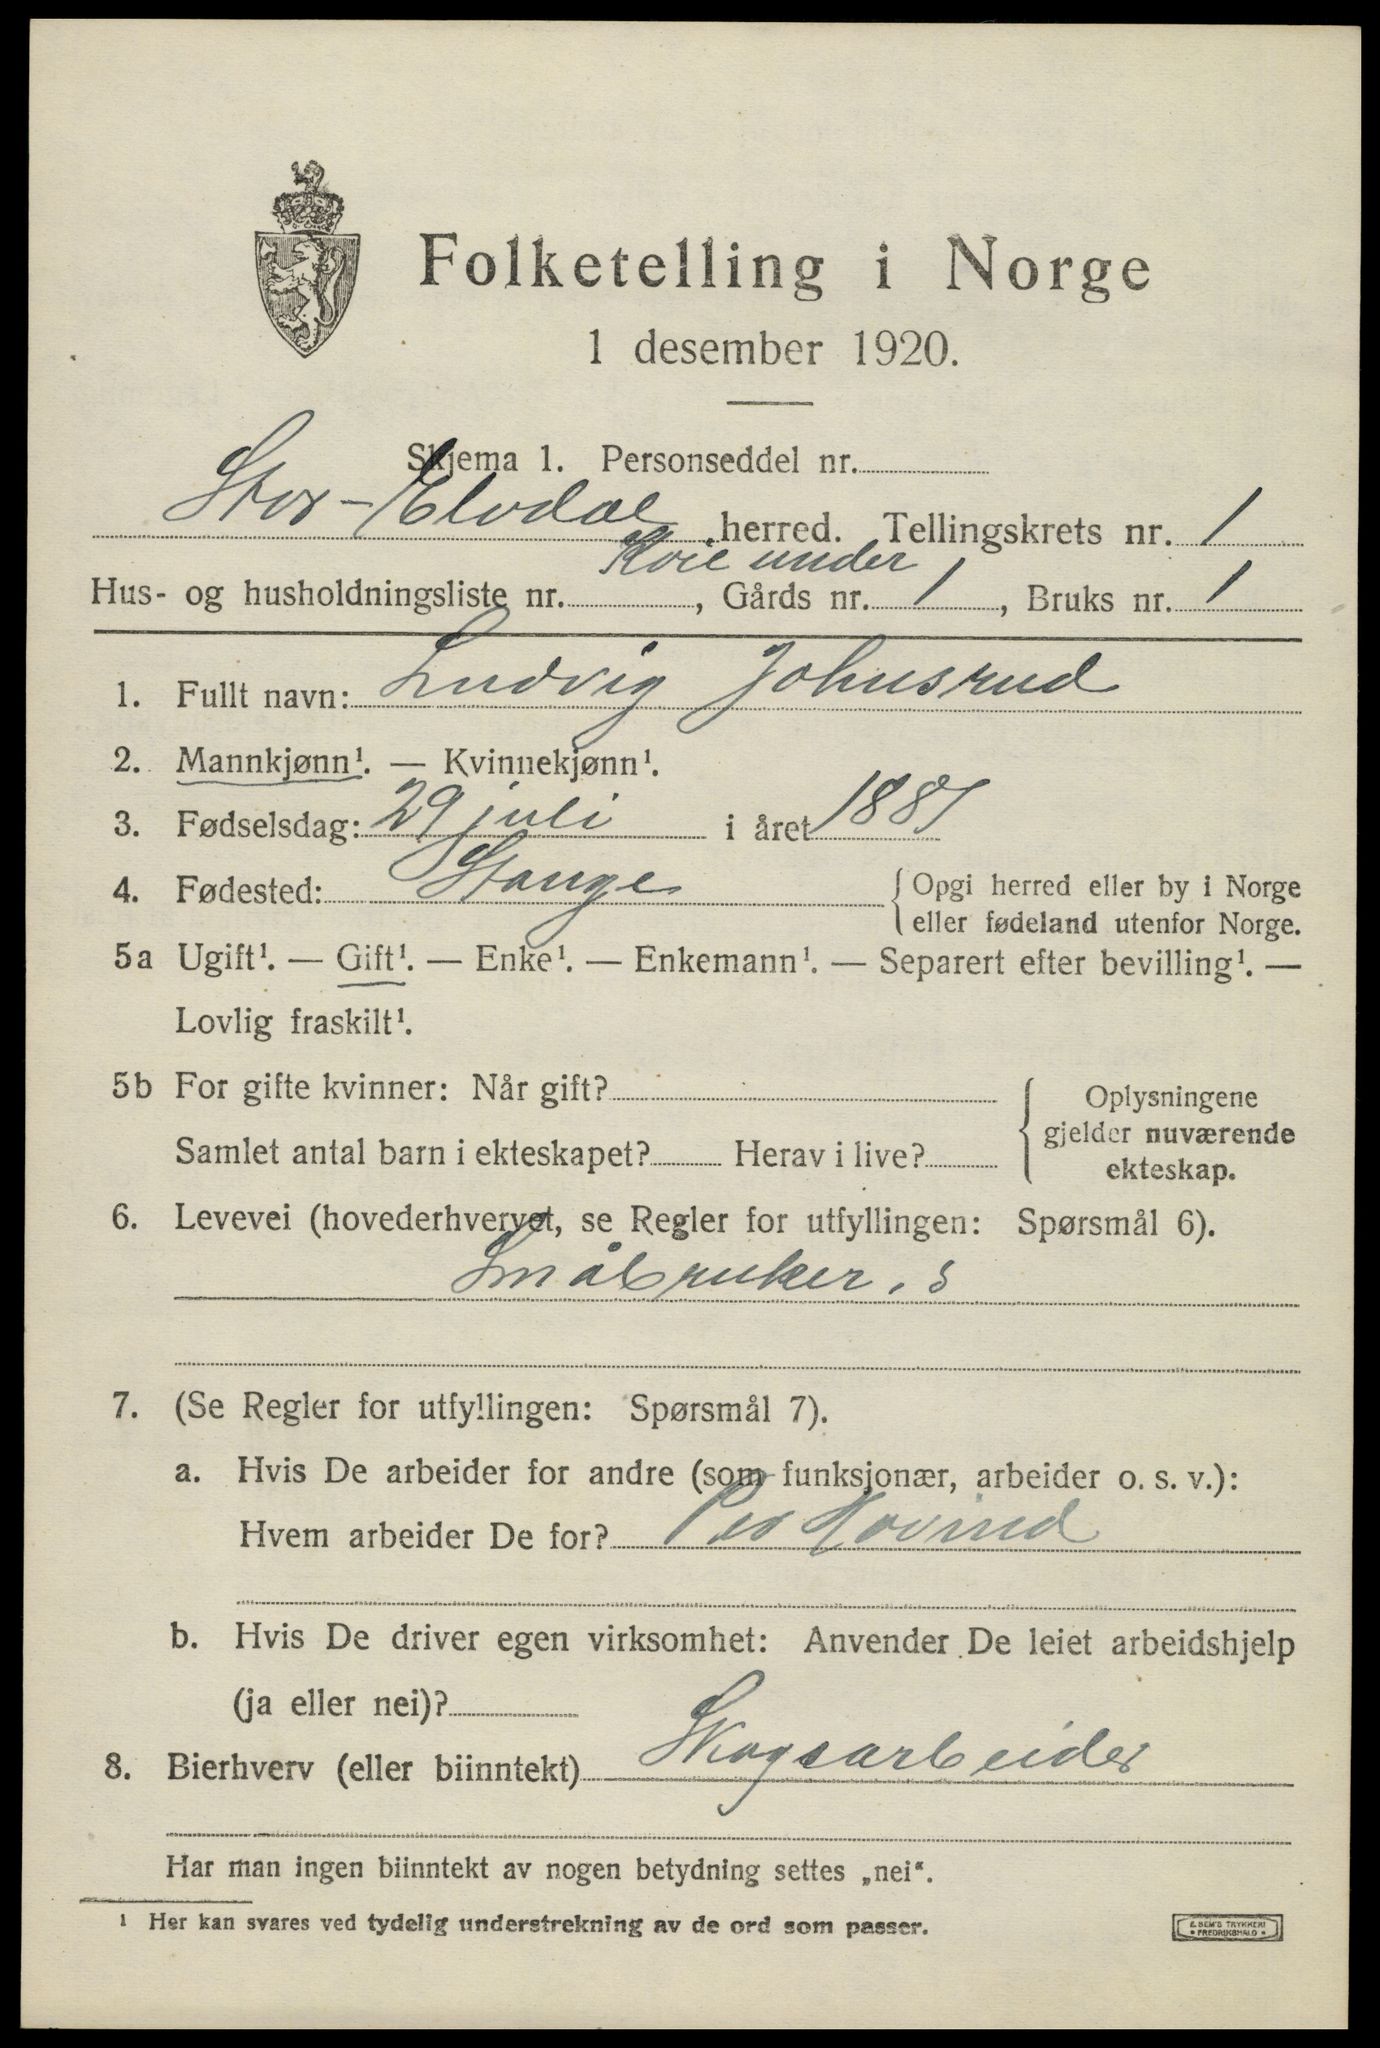 Folketelling i Norge
1 desember 1920.
Skjema 1. Personseddel nr.
Stor-Elvdal herred. Tellingskrets nr. 1
Koie under
Hus- og husholdningsliste nr. , Gårds nr. 1 , Bruks nr. 1
1. Fullt navn: Ludvig Johnsrud
2. Mannkjønn¹. — Kvinnekjønn¹.
3. Fødselsdag: 29 juli i året 1887
4. Fødested: Stange { Opgi herred eller by i Norge
eller fødeland utenfor Norge.
5a Ugift¹. — Gift¹. — Enke¹. — Enkemann¹. — Separert efter bevilling¹. —
Lovlig fraskilt¹.
5b For gifte kvinner: Når gift?
Samlet antal barn i ekteskapet? Herav i live?
Oplysningene
gjelder nuværende
ekteskap.
6. Levevei (hovederhvervet, se Regler for utfyllingen: Spørsmål 6).
Småbruker. s
7. (Se Regler for utfyllingen: Spørsmål 7).
a. Hvis De arbeider for andre (som funksjonær, arbeider o. s. v.):
Hvem arbeider De for? Per Hovind
b. Hvis De driver egen virksomhet: Anvender De leiet arbeidshjelp
(ja eller nei)?
8. Bierhverv (eller biinntekt) Skogsarbeider
Har man ingen biinntekt av nogen betydning settes „nei“.
¹ Her kan svares ved tydelig understrekning av de ord som passer.
E. SEM'S TRYKKERI
* FREDRIKSHALD *